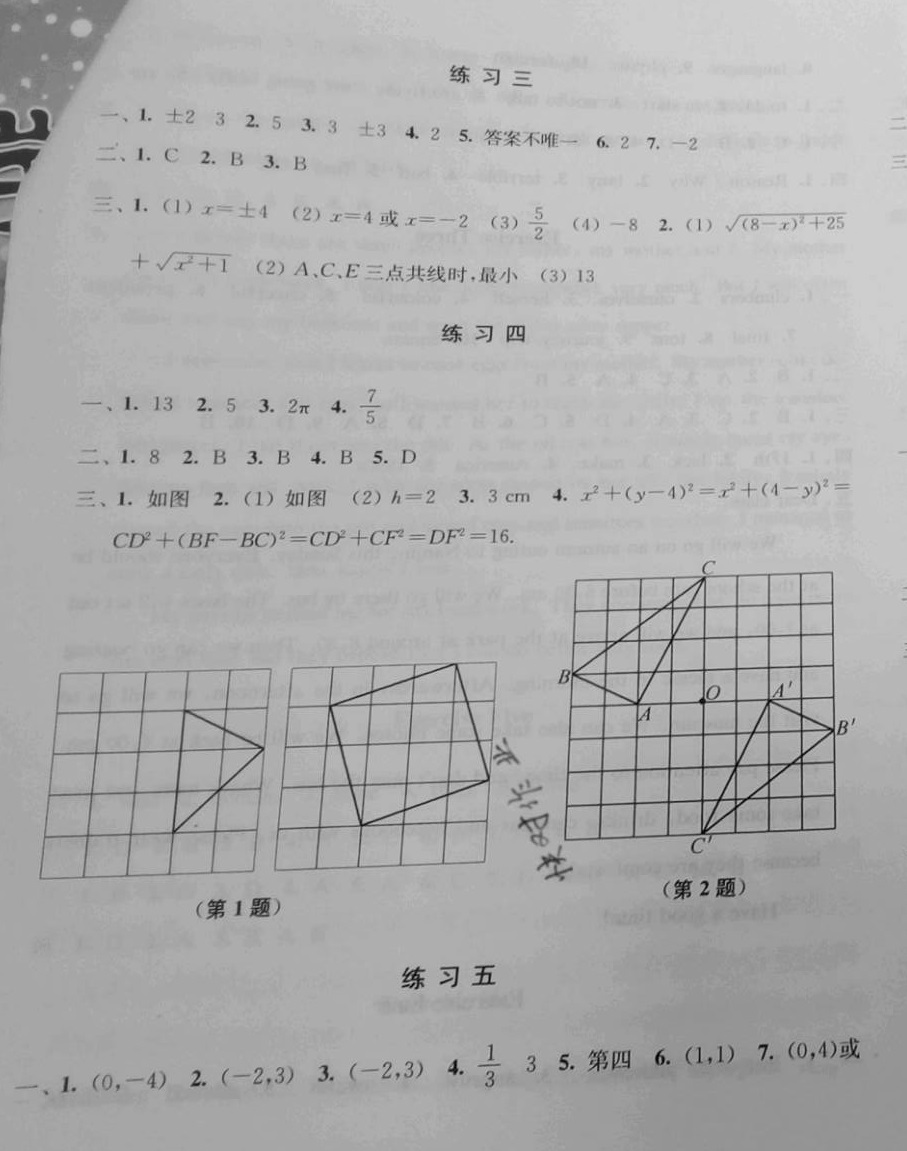 练习三
一、1. ±2 3 2. 5 3. 3 ±3 4. 2 5. 答案不唯一 6. 2 7. －2
二、1. C 2. B 3. B
三、1. (1) x=±4 (2) x=4 或 x=－2 (3) 5/2 (4) －8 2. (1) √((8－x)²+25)
+√(x²+1) (2) A、C、E 三点共线时,最小 (3) 13
练习四
一、1. 13 2. 5 3. 2π 4. 7/5
二、1. 8 2. B 3. B 4. B 5. D
三、1. 如图 2. (1) 如图 (2) h=2 3. 3 cm 4. x²+(y－4)²=x²+(4－y)²=
CD²+(BF－BC)²=CD²+CF²=DF²=16.
C
B
A
O
A′
B′
C′
(第1题)
(第2题)
练习五
一、1. (0,－4) 2. (－2,3) 3. (－2,3) 4. 1/3 3 5. 第四 6. (1,1) 7. (0,4)或